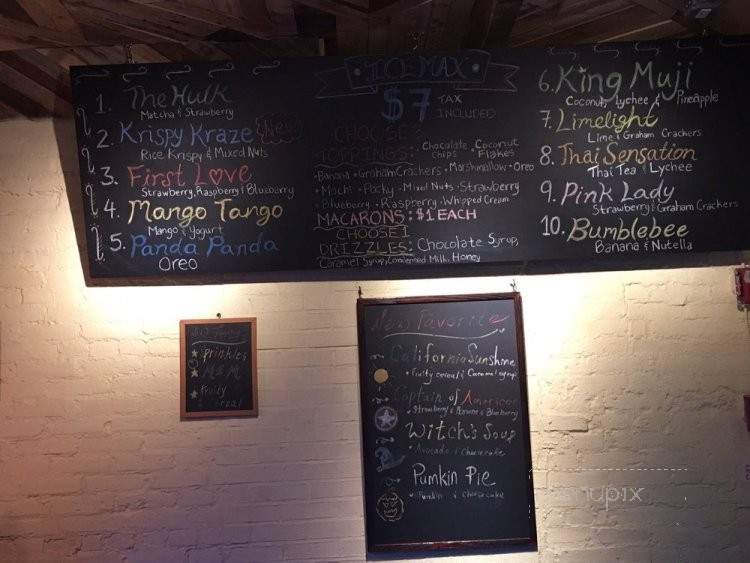 1. The Hulk
Matcha & Strawberry
2. Krispy Kraze New
Rice Krispy & Mixed Nuts
3. First Love
Strawberry, Raspberry & Blueberry
4. Mango Tango
Mango & Yogurt
5. Panda Panda
Oreo
ICE MAX
$7 TAX
INCLUDED
TOPPINGS: Chocolate Coconut
chips Flakes
•Banana •Graham Crackers •Marshmallow •Oreo
•Mochi •Pocky •Mixed Nuts •Strawberry
•Blueberry •Raspberry •Whipped Cream
MACARONS: $1 EACH
CHOOSE 1
DRIZZLES: Chocolate Syrup,
Caramel Syrup, Condensed Milk, Honey
6. King Muji
Coconut, Lychee & Pineapple
7. Limelight
Lime & Graham Crackers
8. Thai Sensation
Thai Tea & Lychee
9. Pink Lady
Strawberry & Graham Crackers
10. Bumblebee
Banana & Nutella
Sprinkles
M&M
Fruity
New Favorite
California Sunshine
• Fruity cereal & Caramel syrup
Captain of American
• Strawberry & Banana & Blueberry
Witch's Soup
• Avocado & Cheesecake
Pumkin Pie
• Pumkin & cheesecake
menupix